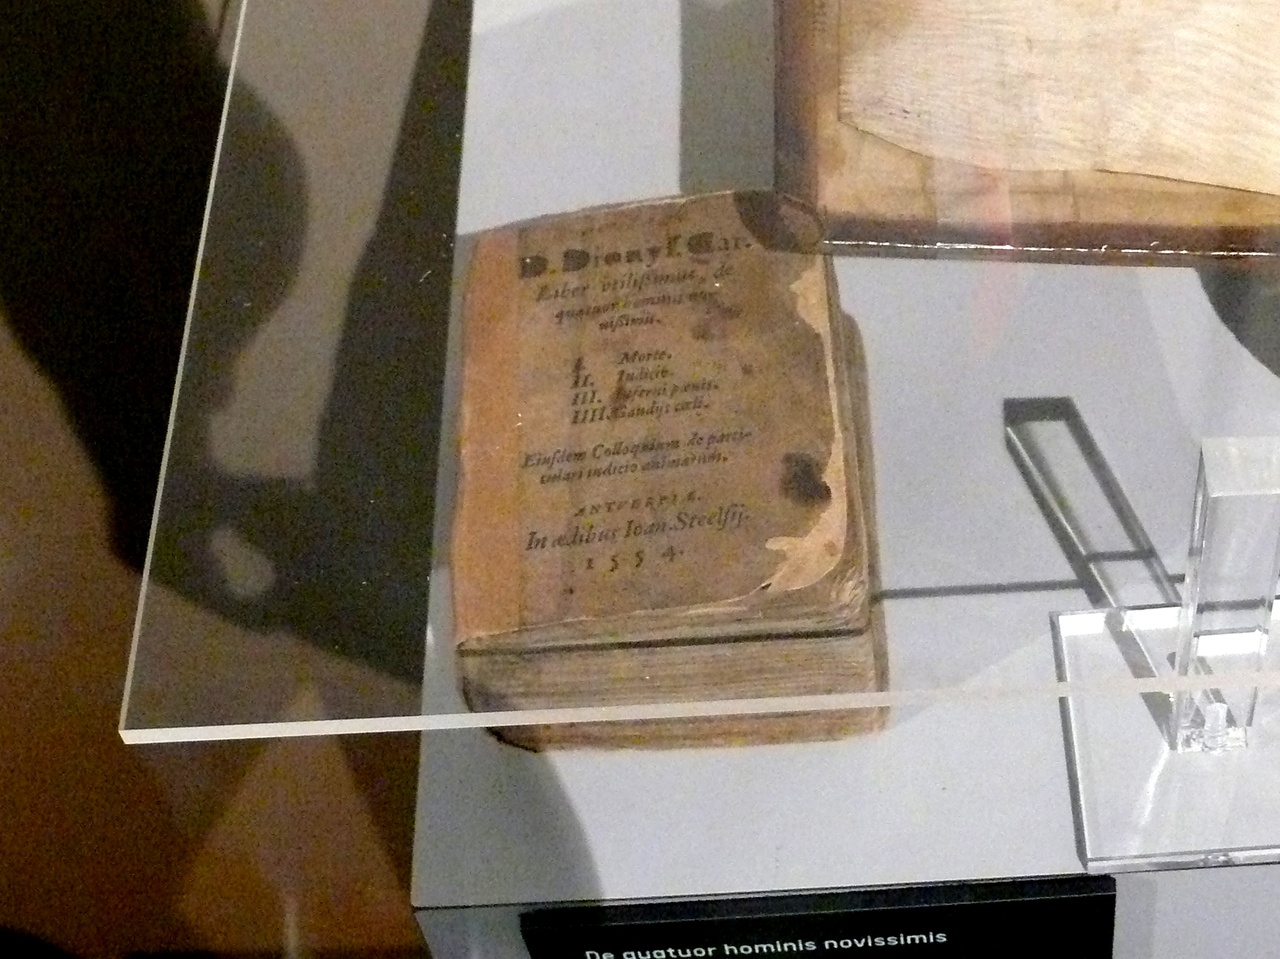 D. Dionys. Car.
Liber vtilissimus, de
quatuor hominis no-
uissimis.
I. Morte.
II. Iudicio.
III. Inferni pœnis.
IIII. Gaudijs cœli.
Eiusdem Colloquium de parti-
culari iudicio animarum.
ANTVERPIÆ.
In ædibus Ioan. Steelsij.
1554.
De quatuor hominis novissimis